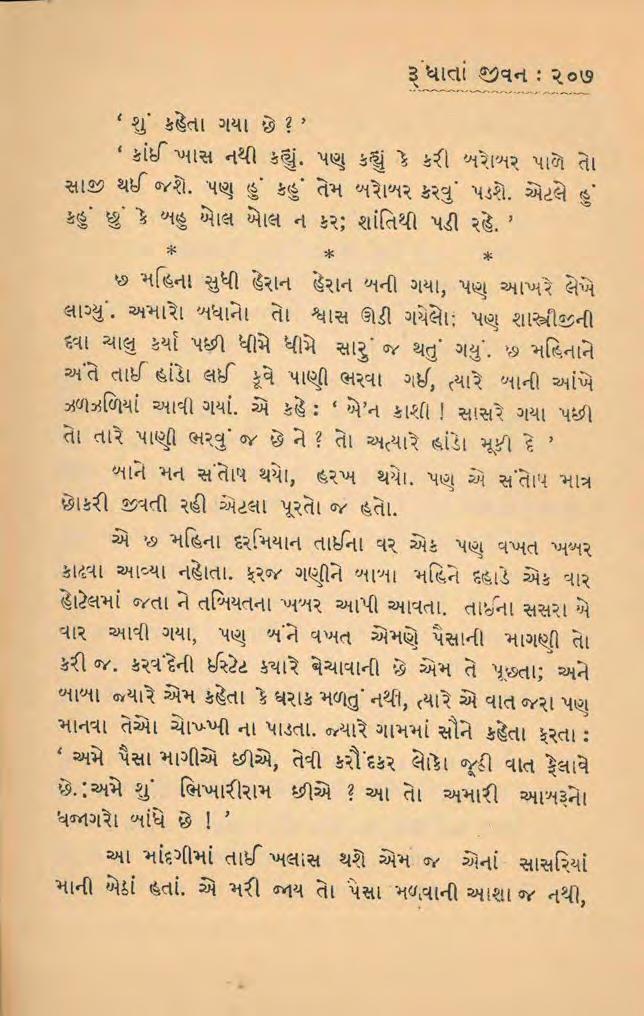 રૂંધાતાં જીવન : ૨૦૭
‘ શું કહેતા ગયા છે ? ’
‘ કાંઈ ખાસ નથી કહ્યું. પણ કહ્યું કે કરી બરોબર પાળે તો
સાજી થઈ જશે. પણ હું કહું તેમ બરોબર કરવું પડશે. એટલે હું
કહું છું કે બહુ બોલ બોલ ન કર; શાંતિથી પડી રહે. ’
* * *
છ મહિના સુધી હેરાન હેરાન બની ગયા, પણ આખરે લેખે
લાગ્યું. અમારો બધાનો તો શ્વાસ ઊડી ગયેલો; પણ શાસ્ત્રીજીની
દવા ચાલુ કર્યા પછી ધીમે ધીમે સારું જ થતું ગયું. છ મહિનાને
અંતે તાઈ હાંડો લઈ કૂવે પાણી ભરવા ગઈ, ત્યારે બાની આંખે
ઝળઝળિયાં આવી ગયાં. એ કહે : ‘ બે’ન કાશી ! સાસરે ગયા પછી
તો તારે પાણી ભરવું જ છે ને ? તો અત્યારે હાંડો મૂકી દે ’
બાને મન સંતોષ થયો, હરખ થયો. પણ એ સંતોષ માત્ર
છોકરી જીવતી રહી એટલા પૂરતો જ હતો.
એ છ મહિના દરમિયાન તાઈના વર એક પણ વખત ખબર
કાઢવા આવ્યા નહોતા. ફરજ ગણીને બાબા મહિને દહાડે એક વાર
હોટેલમાં જતા ને તબિયતના ખબર આપી આવતા. તાઈના સસરા બે
વાર આવી ગયા, પણ બંને વખત એમણે પૈસાની માગણી તો
કરી જ. કરવંદેની ઈસ્ટેટ ક્યારે બેચાવાની છે એમ તે પૂછતા; અને
બાબા જ્યારે એમ કહેતા કે ઘરાક મળતું નથી, ત્યારે એ વાત જરા પણ
માનવા તેઓ ચોખ્ખી ના પાડતા. જ્યારે ગામમાં સૌને કહેતા ફરતા :
‘ અમે પૈસા માગીએ છીએ, તેવી કરૌંદકર લોકો જૂઠી વાત ફેલાવે
છે.:અમે શું ભિખારીરામ છીએ ? આ તો અમારી આબરૂનો
ધજાગરો બાંધે છે ! ’
આ માંદગીમાં તાઈ ખલાસ થશે એમ જ એનાં સાસરિયાં
માની બેઠાં હતાં. એ મરી જાય તો પૈસા મળવાની આશા જ નથી,